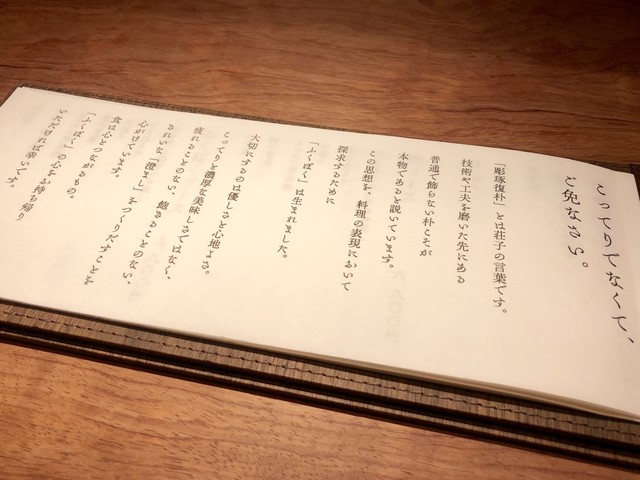 こってりでなくて、
ご免なさい。
「彫琢復朴」とは荘子の言葉です。
技術や工夫を磨いた先にある
普通で飾らない朴こそが
本物であると説いています。
この思想を、料理の表現において
探求するために
「ふくぼく」は生まれました。
大切にするのは優しさと心地よさ。
こってりと濃厚な美味しさではなく、
疲れることのない、飽きることのない、
きれいな「澄まし」をつくりだすことを
心がけています。
食は心とつながるもの。
「ふくぼく」の心をお持ち帰り
いただければ幸いです。